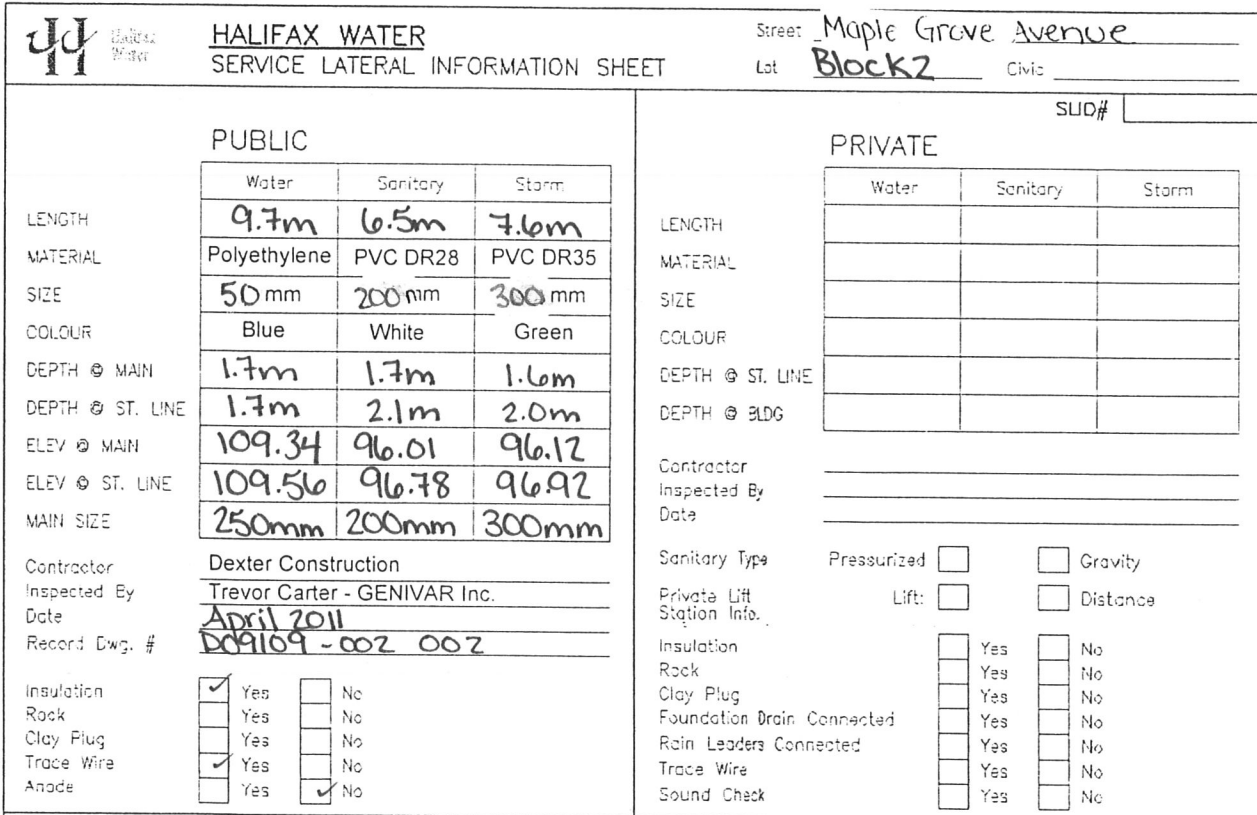 Halifax Water
HALIFAX WATER
SERVICE LATERAL INFORMATION SHEET
Street Maple Grove Avenue
Lot Block 2 Civic
SLID#
PUBLIC
Water Sanitary Storm
LENGTH 9.7m 6.5m 7.6m
MATERIAL Polyethylene PVC DR28 PVC DR35
SIZE 50 mm 200 mm 300 mm
COLOUR Blue White Green
DEPTH @ MAIN 1.7m 1.7m 1.6m
DEPTH @ ST. LINE 1.7m 2.1m 2.0m
ELEV @ MAIN 109.34 96.01 96.12
ELEV @ ST. LINE 109.56 96.78 96.92
MAIN SIZE 250mm 200mm 300mm
Contractor Dexter Construction
Inspected By Trevor Carter - GENIVAR Inc.
Date April 2011
Record Dwg. # D09109-002 002
Insulation ✓ Yes No
Rock Yes No
Clay Plug Yes No
Trace Wire ✓ Yes No
Anode Yes ✓ No
PRIVATE
Water Sanitary Storm
LENGTH
MATERIAL
SIZE
COLOUR
DEPTH @ ST. LINE
DEPTH @ BLDG
Contractor
Inspected By
Date
Sanitary Type Pressurized Gravity
Private Lift Lift: Distance
Station Info.
Insulation Yes No
Rock Yes No
Clay Plug Yes No
Foundation Drain Connected Yes No
Rain Leaders Connected Yes No
Trace Wire Yes No
Sound Check Yes No